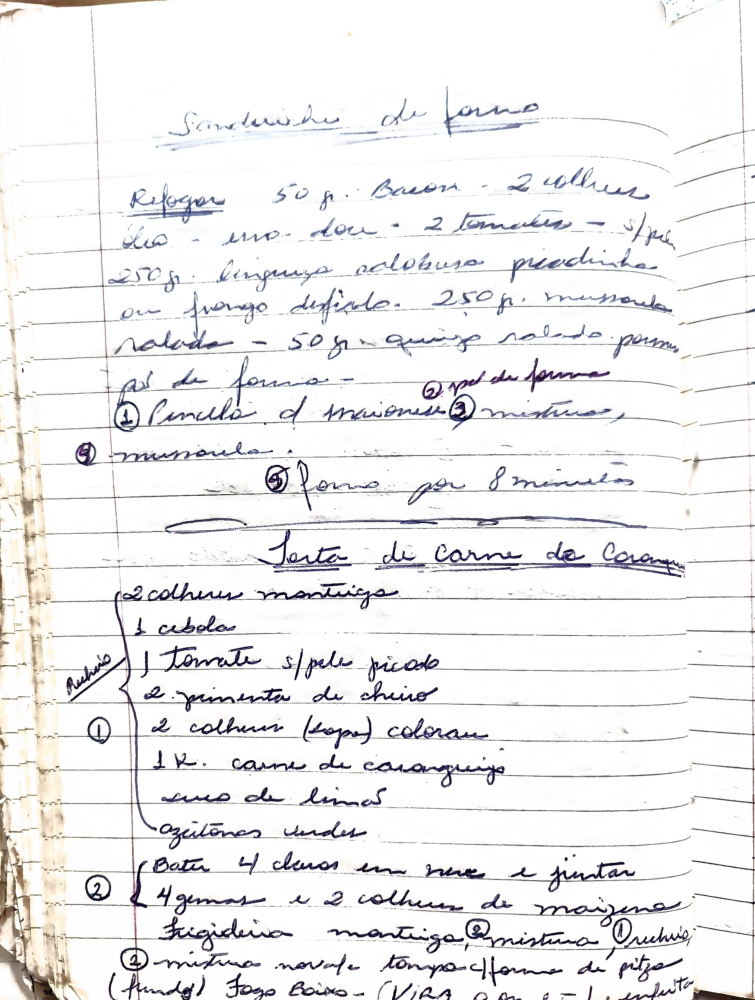 Sanduiche de forno
Refogar 50 gr. Bacon - 2 colheres
óleo - erva-doce - 2 tomates - s/pele
250 gr. linguiça calabresa picadinha
ou frango desfiado. 250 gr. mussarela
ralada - 50 gr. queijo ralado parme
pão de forma -
② pão de forma
① Pincela c/ maionese ③ mistura,
④ mussarela.
⑤ forno por 8 minutos
Torta de carne de Carangue
2 colheres manteiga
1 cebola
1 tomate s/pele picado
2 pimenta de cheiro
Recheio
① 2 colheres (sopa) colorau
1 K. carne de caranguejo
suco de limão
azeitonas verdes
② Bater 4 claras em neve e juntar
4 gemas e 2 colheres de maizena
Frigideira manteiga, ② mistura, ① recheio,
② mistura tampa c/forma de pitza
(funda) Fogo Baixo - (VIRA